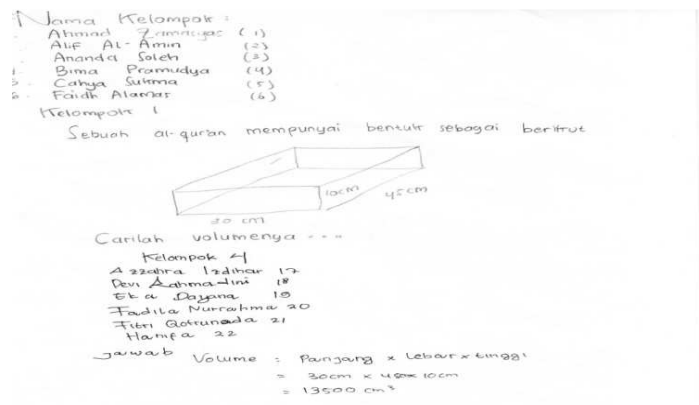 Nama Kelompok :
Ahmad Zamasyas (1)
Alif Al-Amin (2)
Ananda Soleh (3)
4 Bima Pramudya (4)
5. Cahya Sukma (5)
6. Faidh Alamas (6)
Kelompok 1
Sebuah al-quran mempunyai bentuk sebagai berikut
10cm
45cm
30 cm
Carilah volumenya ...
Kelompok 4
Azzahra Izdihar 17
Devi Rahmadini 18
Eka Dayana 19
Fadila Nurrahma 20
Fitri Qotrunada 21
Hanifa 22
Jawab Volume : Panjang x Lebar x tinggi
= 30cm x 45 x 10cm
= 13500 cm³